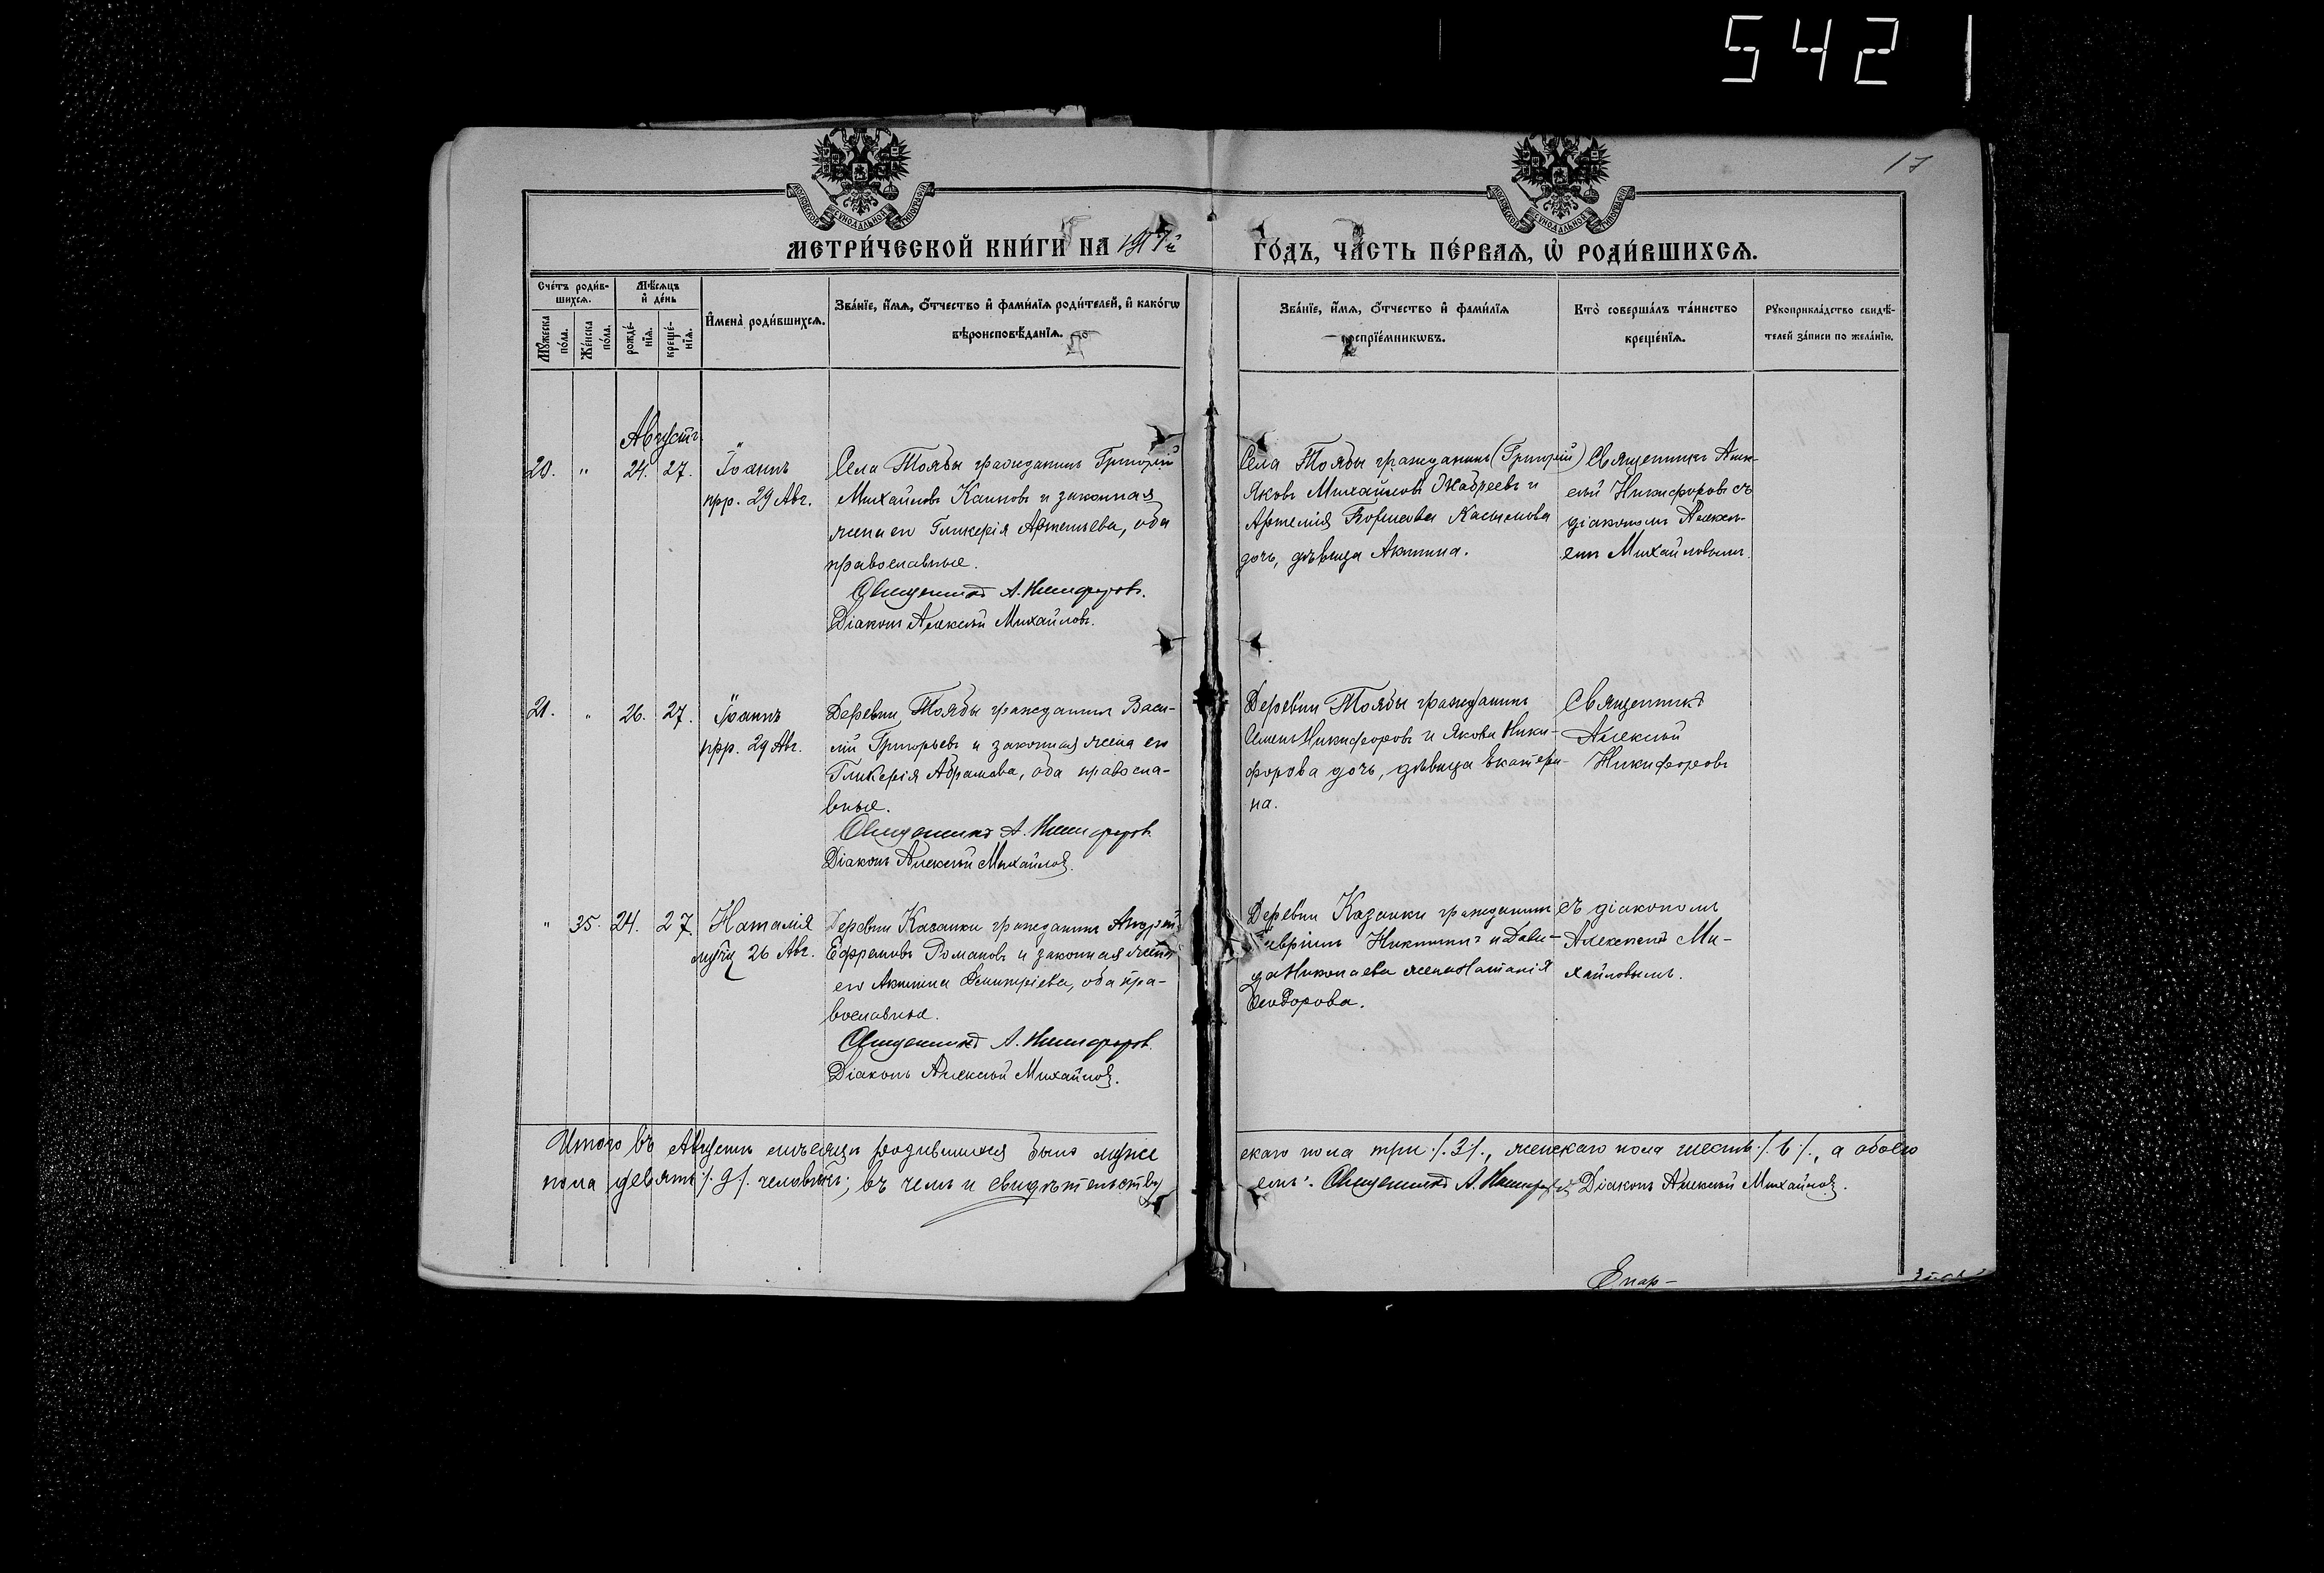 542
17
МЕТРИ́ЧЕСКОЙ КНИ́ГИ НА 1917й ГО́ДЪ, ЧА́СТЬ ПЕ́РВАЯ, Ѡ РОДИ́ВШИХСѦ.
Сче́тъ роди́в-
шихсѧ.
Мꙋ́жеска по́ла.
Же́нска по́ла.
Мѣ́сѧцъ и де́нь
рожде́-нїѧ.
креще́-нїѧ.
Имена̀ роди́вшихсѧ.
Зва́нїе, и́мѧ, о́тчество и фами́лїѧ роди́телей, и како́гѡ
вѣроисповѣ́данїѧ.
Зва́нїе, и́мѧ, о́тчество и фами́лїѧ
воспрїе́мникѡвъ.
Кто̀ соверша́лъ та́инство
креще́нїѧ.
Рꙋкоприкла́дство свидѣ́-
телей за́писи по жела́нїю.
Августъ
20. " 24. 27. Іоаннъ
прр. 29 Авг.
Села Тоябы гражданинъ Григорій
Михайловъ Каиновъ и законная
жена его Гликерія Артемьева, оба
православные.
Священникъ А. Никифоровъ.
Діаконъ Алексѣй Михайловъ.
Села Тоябы гражданинъ (Григорій)
Яковъ Михайловъ и
Артемія дочь, дѣвица Акилина.
Священникъ Алек-
сѣй Никифоровъ съ
діакономъ Алексѣ-
емъ Михайловымъ.
21. " 26. 27. Іоаннъ
прр. 29 Авг.
Деревни Тоябы гражданинъ Васи-
лій Григорьевъ и законная жена его
Гликерія Абрамова, оба правосла-
вные.
Священникъ А. Никифоровъ.
Діаконъ Алексѣй Михайловъ.
Деревни Тоябы гражданинъ
Никифоровъ и Якова Ники-
форова дочь, дѣвица Екатери-
на.
Священникъ
Алексѣй
Никифоровъ
" 35. 24. 27. Наталія
мучц 26 Авг.
Деревни Казанки гражданинъ Андрей
Ефремовъ Романовъ и законная жена
его Акилина Димитріева, оба пра-
вославные.
Священникъ А. Никифоровъ.
Діаконъ Алексѣй Михайловъ.
Деревни Казанки гражданинъ
Никитинъ и Дави-
да Николаева жена Наталія
Ѳеодорова.
съ діакономъ
Алексѣемъ Ми-
хайловымъ.
Итого въ Августѣ мѣсяцѣ родившихся было муже
скаго пола три /.3/., женскаго пола шесть /.6/., а обоего
пола девять /.9/. человѣкъ; въ чемъ и свидѣтельству
емъ: Священникъ А. Никифоровъ Діаконъ Алексѣй Михайловъ.
Епар-